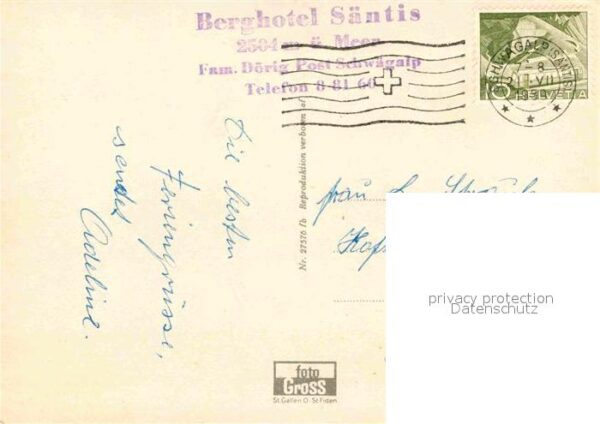 Berghotel Säntis
2504 m ü. Meer
Fam. Dörig Post Schwägalp
Telefon 8 81 60
SCHWÄGALP (SÄNTIS)
HELVETIA
Die besten
Feriengrüsse,
sendet
Adeline.
Nr. 27576 fb Reproduktion verboten
Frau
privacy protection
Datenschutz
foto
Gross
St. Gallen O - St. Fiden